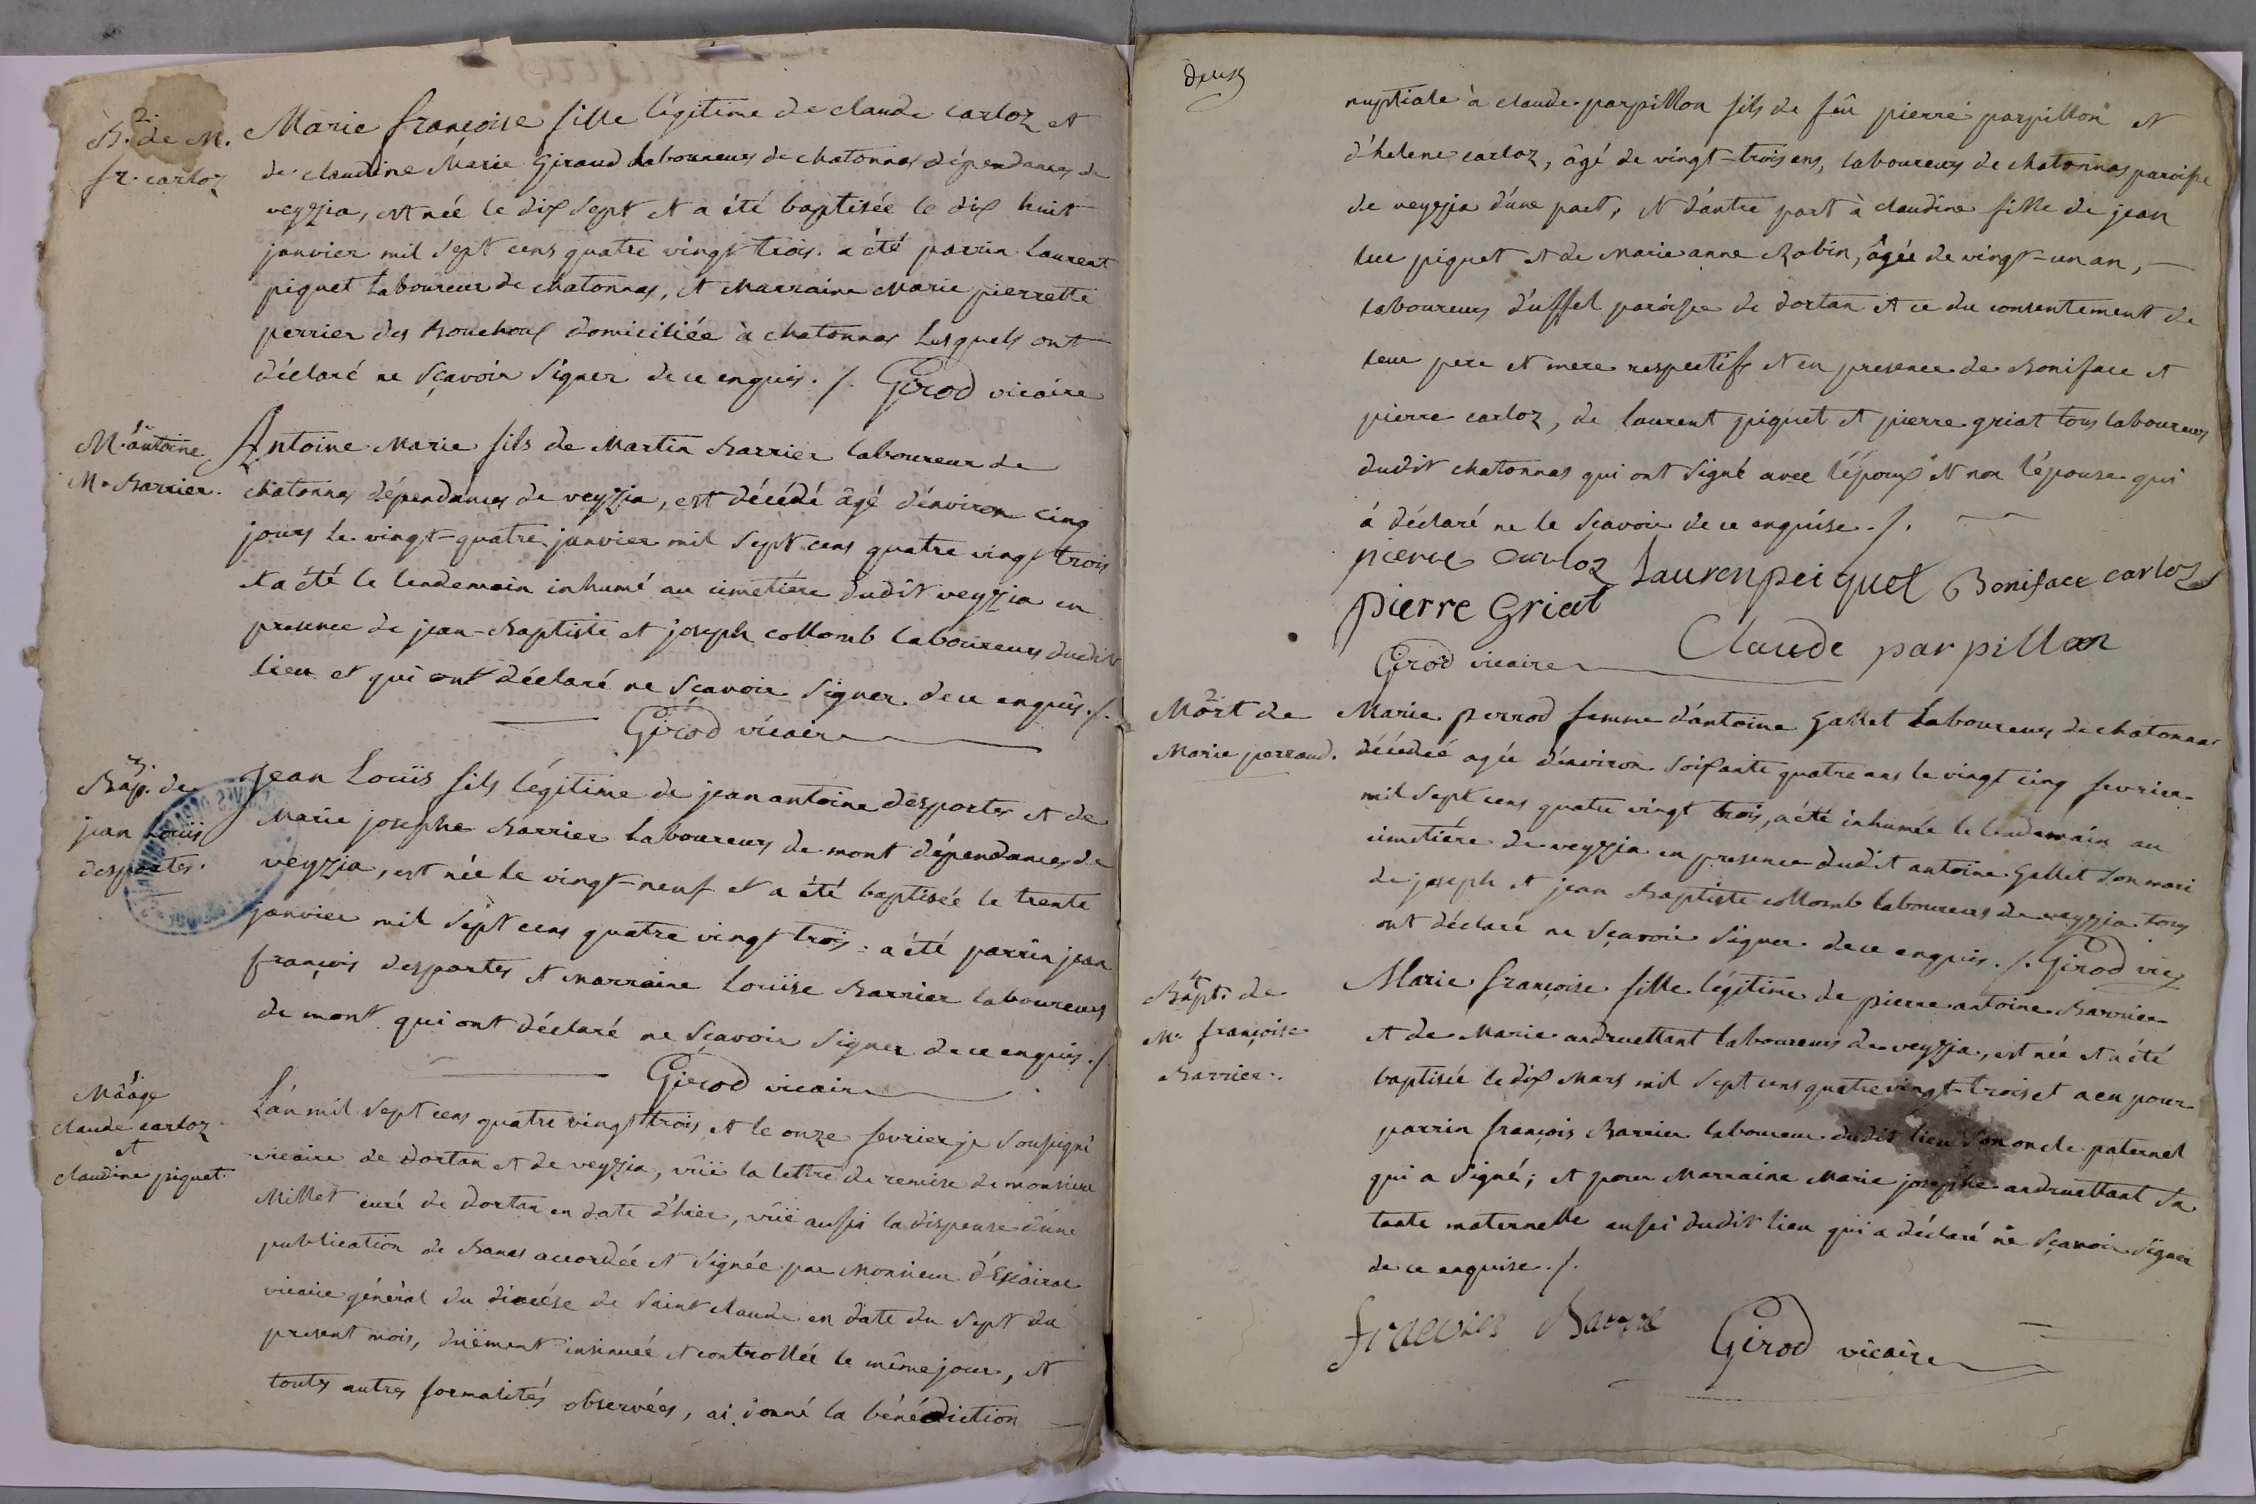 2.
B. de M.
fr. carloz
Marie françoise fille légitime de claude carloz et
de claudine Marie Giraud laboureurs de chatonnas dépendances de
veyzia, est née le dix sept et a été baptisée le dix huit
janvier mil sept cens quatre vingt trois. a été parrin laurent
piquet laboureur de chatonnas, et marraine Marie pierrette
perrier des bouchoux domiciliée à chatonnas lesquels ont
déclaré ne sçavoir signer de ce enquis ./. Girod vicaire
1.
M. antoine
M. Barrier.
Antoine Marie fils de Martin Barrier laboureur de
chatonnas dépendances de veyzia, est décédé âgé d'environ cinq
jours le vingt-quatre janvier mil sept cens quatre vingt trois
et a été le lendemain inhumé au cimetiére dudit veyzia en
presence de jean-Baptiste et joseph collomb laboureurs dudit
lieu et qui ont déclaré ne sçavoir signer de ce enquis ./.
Girod vicaire
3.
Bap. de
jean Louis
desportes.
Jean Louïs fils légitime de jean antoine desportes et de
Marie josephe Barrier laboureurs de mont dépendances de
veyzia, est née le vingt-neuf et a été baptisée le trente
janvier mil sept cens quatre vingt trois : a été parrin jean
françois desportes et marraine Louïse Barrier laboureurs
de mont qui ont déclaré ne sçavoir signer de ce enquis ./.
Girod vicaire
1.
Mâage
claude carloz
et
claudine piquet.
L'an mil sept cens quatre vingt trois et le onze fevrier je soussigné
vicaire de Dortan et de veyzia, vûë la lettre de remise de monsieur
Millet curé de Dortan en date d'hier, vûë aussi la dispense d'une
publication de Bans accordée et signée par Monsieur
vicaire général du diocése de saint claude en date du sept du
present mois, düëment insinuée et controllée le même jour, et
toutes autres formalités observées, ai donné la bénédiction
deux
nuptiale à claude parpillon fils de feû pierre parpillon et
d'helene carloz, âgé de vingt-trois ans, laboureurs de chatonnas paroisse
de veyzia d'une part, et d'autre part à claudine fille de jean
luc piquet et de Marie anne Robin, âgée de vingt-un an,
laboureurs d'uffel paroisse de dortan et ce du consentement de
leur pere et mere respectifs et en presence de Boniface et
pierre carloz, de laurent piquet et pierre griat tous laboureurs
dudit chatonnas qui ont signé avec l'époux et non l'épouse qui
à déclaré ne le sçavoir de ce enquise ./.
pierre carloz Lauren peiquet Boniface carloz
pierre Griat
Claude parpillon
Girod vicaire
2.
Mort de
Marie perraud.
Marie perrod femme d'antoine Gallet laboureurs de chatonnas
décédée agée d'environ soixante quatre ans le vingt cinq fevrier
mil sept cens quatre vingt trois, a été inhumée le lendemain au
cimetiére de veyzia en presence dudit antoine Gallet son mari
de joseph et jean Baptiste collomb laboureurs de veyzia tous
ont déclaré ne sçavoir signer de ce enquis ./. Girod vic
4
Bapt. de
M. françoise
Barrier.
Marie françoise fille légitime de pierre antoine Barrier
et de Marie andruettant laboureurs de veyzia, est née et a été
baptisée le dix Mars mil sept cens quatre vingt-trois et a eu pour
parrin françois Barrier laboureur dudit lieu son oncle paternel
qui a signé ; et pour Marraine Marie josephe andruettant sa
tante maternelle aussi dudit lieu qui a déclaré ne sçavoir signer
de ce enquise ./.
Girod vicaire